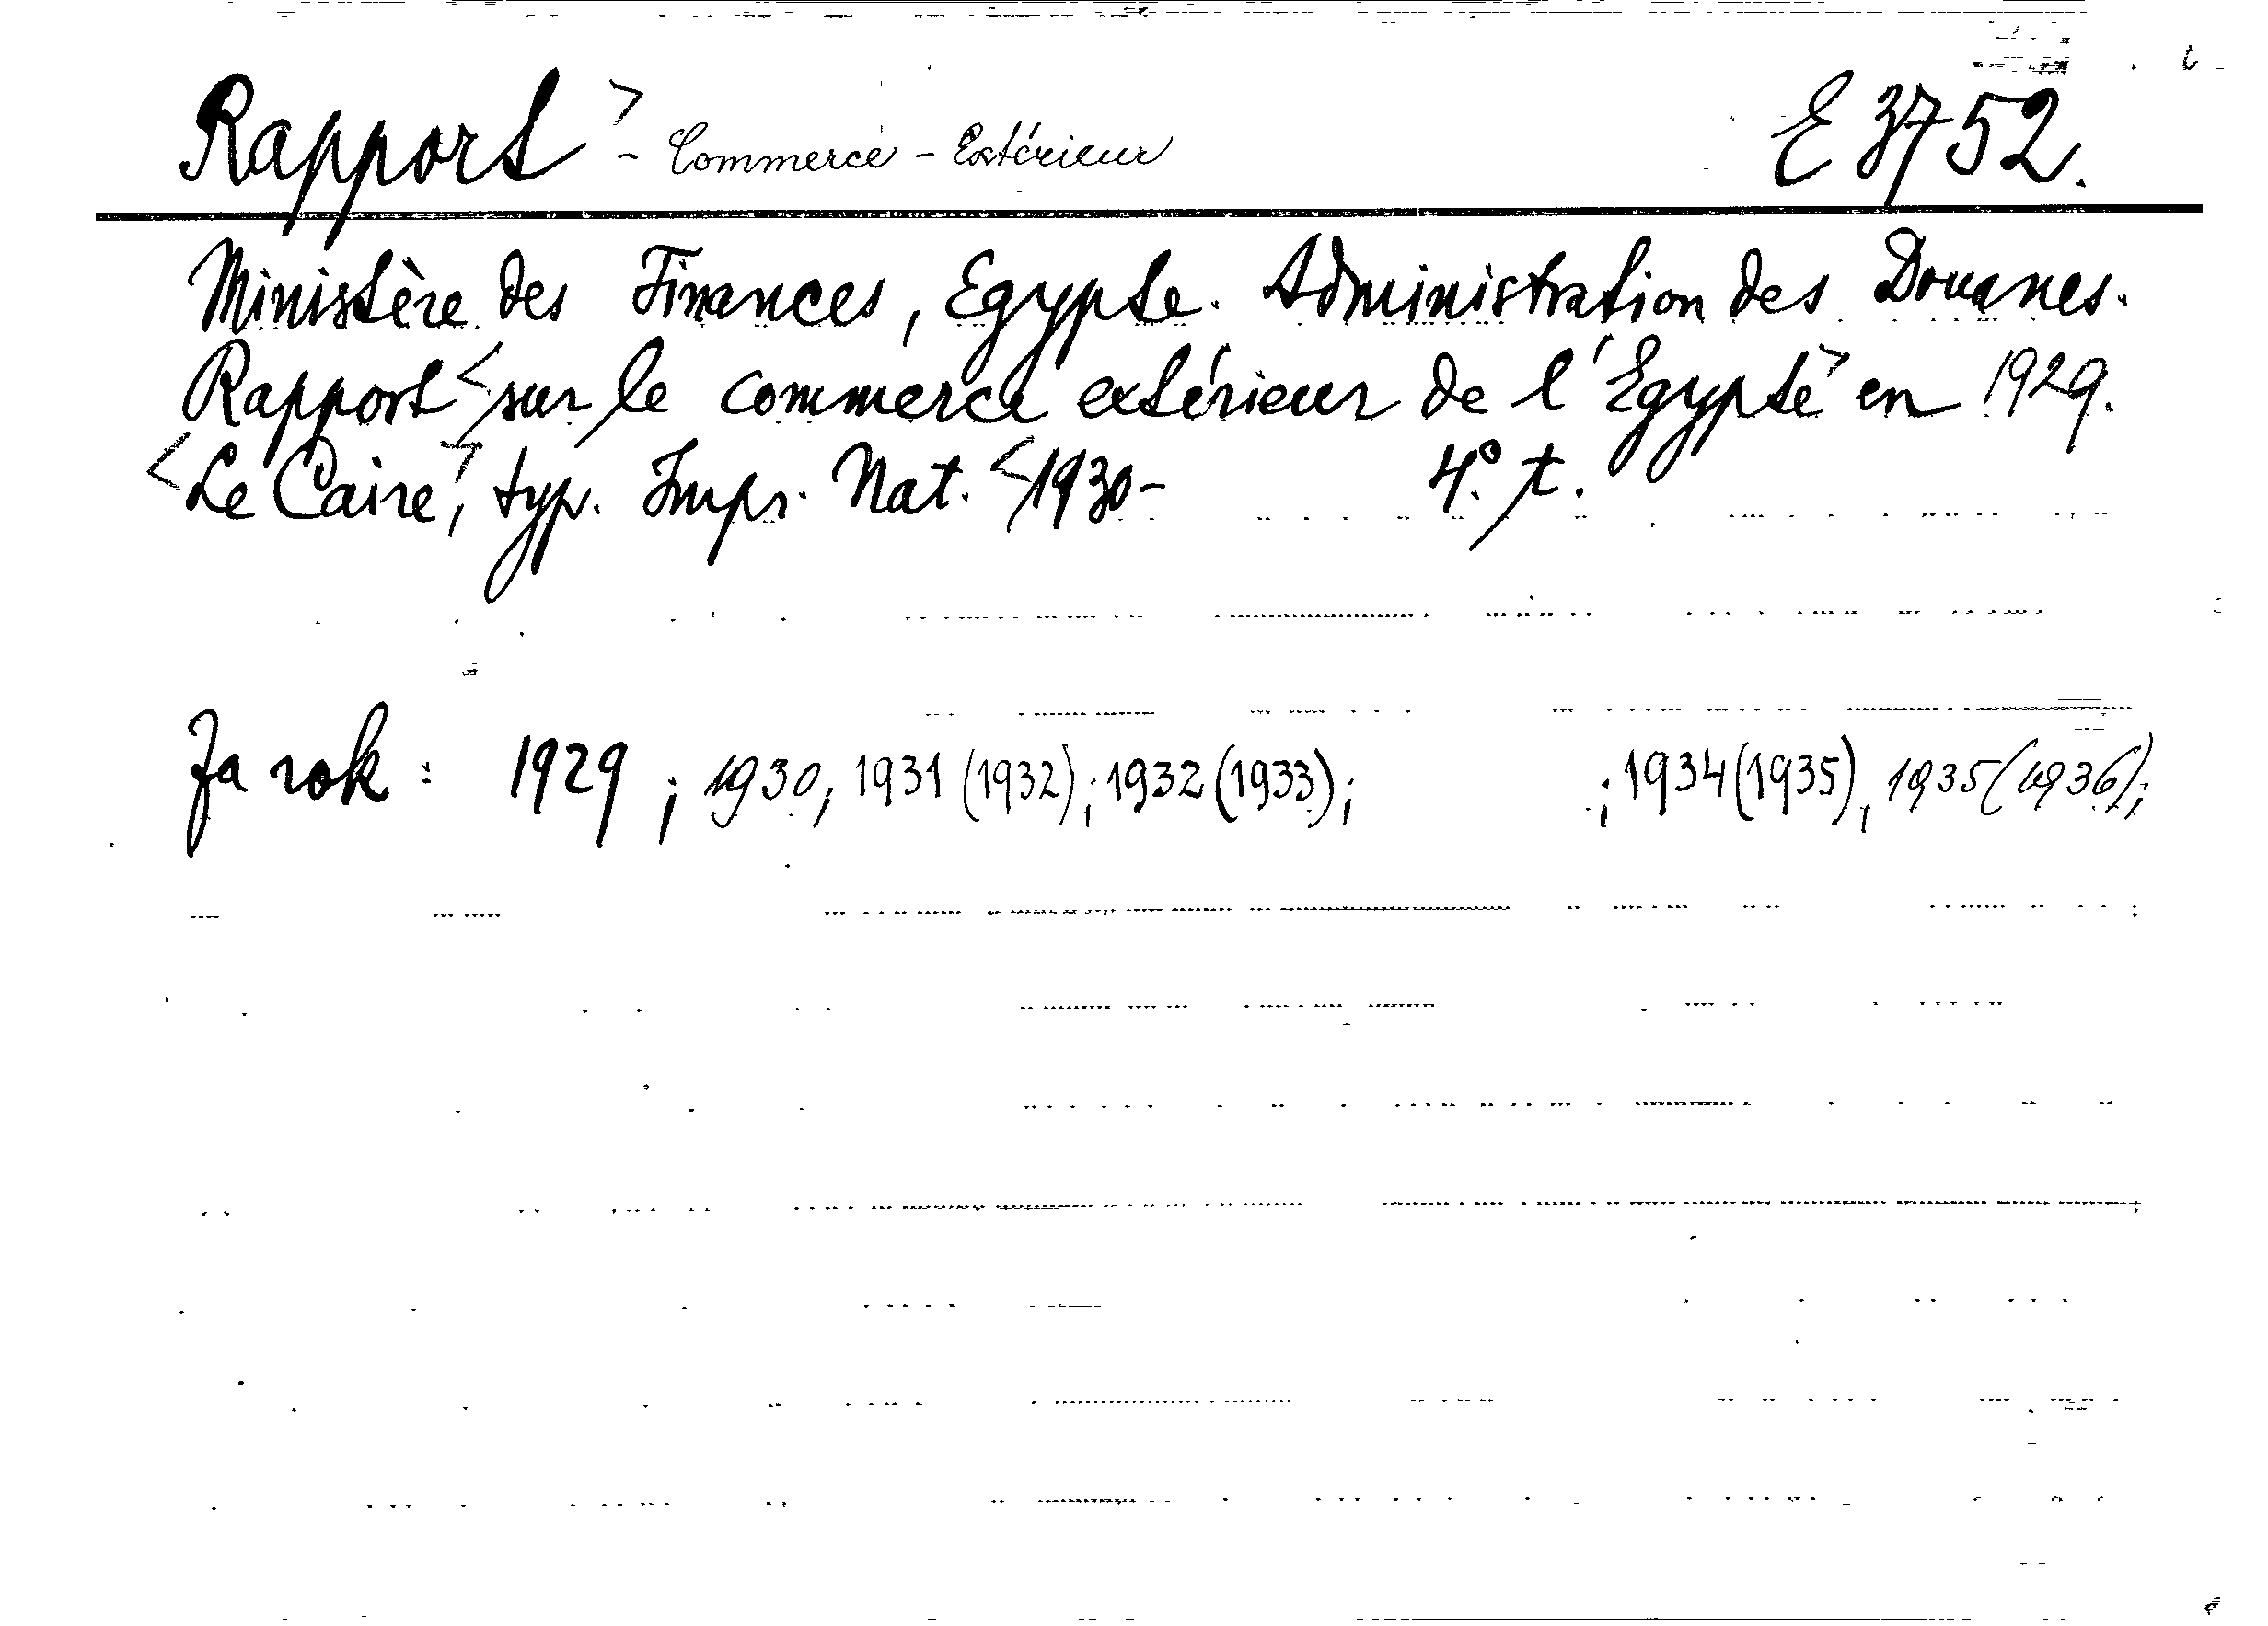 Rapport > - Commerce - Extérieur E 3752.
Ministère des Finances, Egypte. Administration des Douanes.
Rapport < sur le commerce extérieur de l'Egypte > en 1929.
< Le Caire >, typ. Impr. Nat. < 1930- 4.° t.
Za rok: 1929; 1930; 1931 (1932); 1932 (1933); ; 1934 (1935), 1935 (1936);